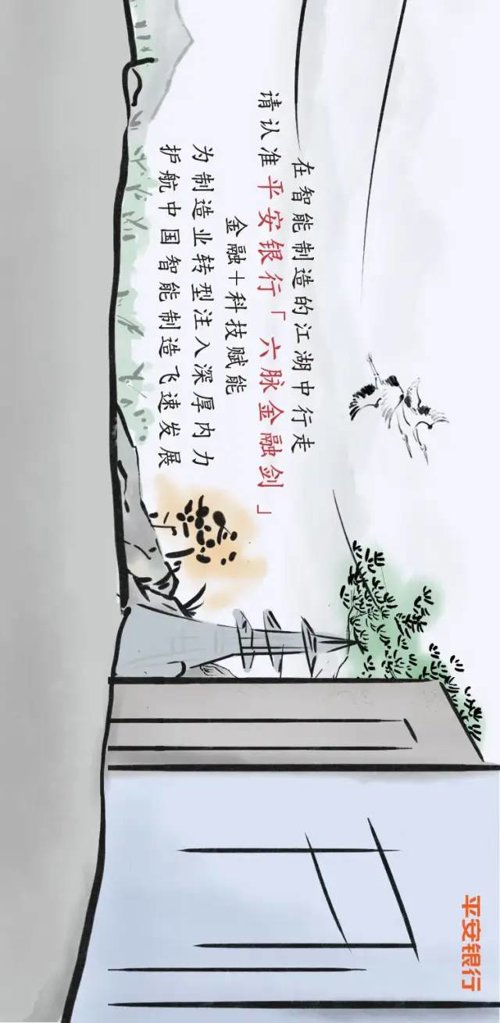 在智能制造的江湖中行走
请认准平安银行「六脉金融剑」
金融+科技赋能
为制造业转型注入深厚内力
护航中国智能制造飞速发展
平安银行